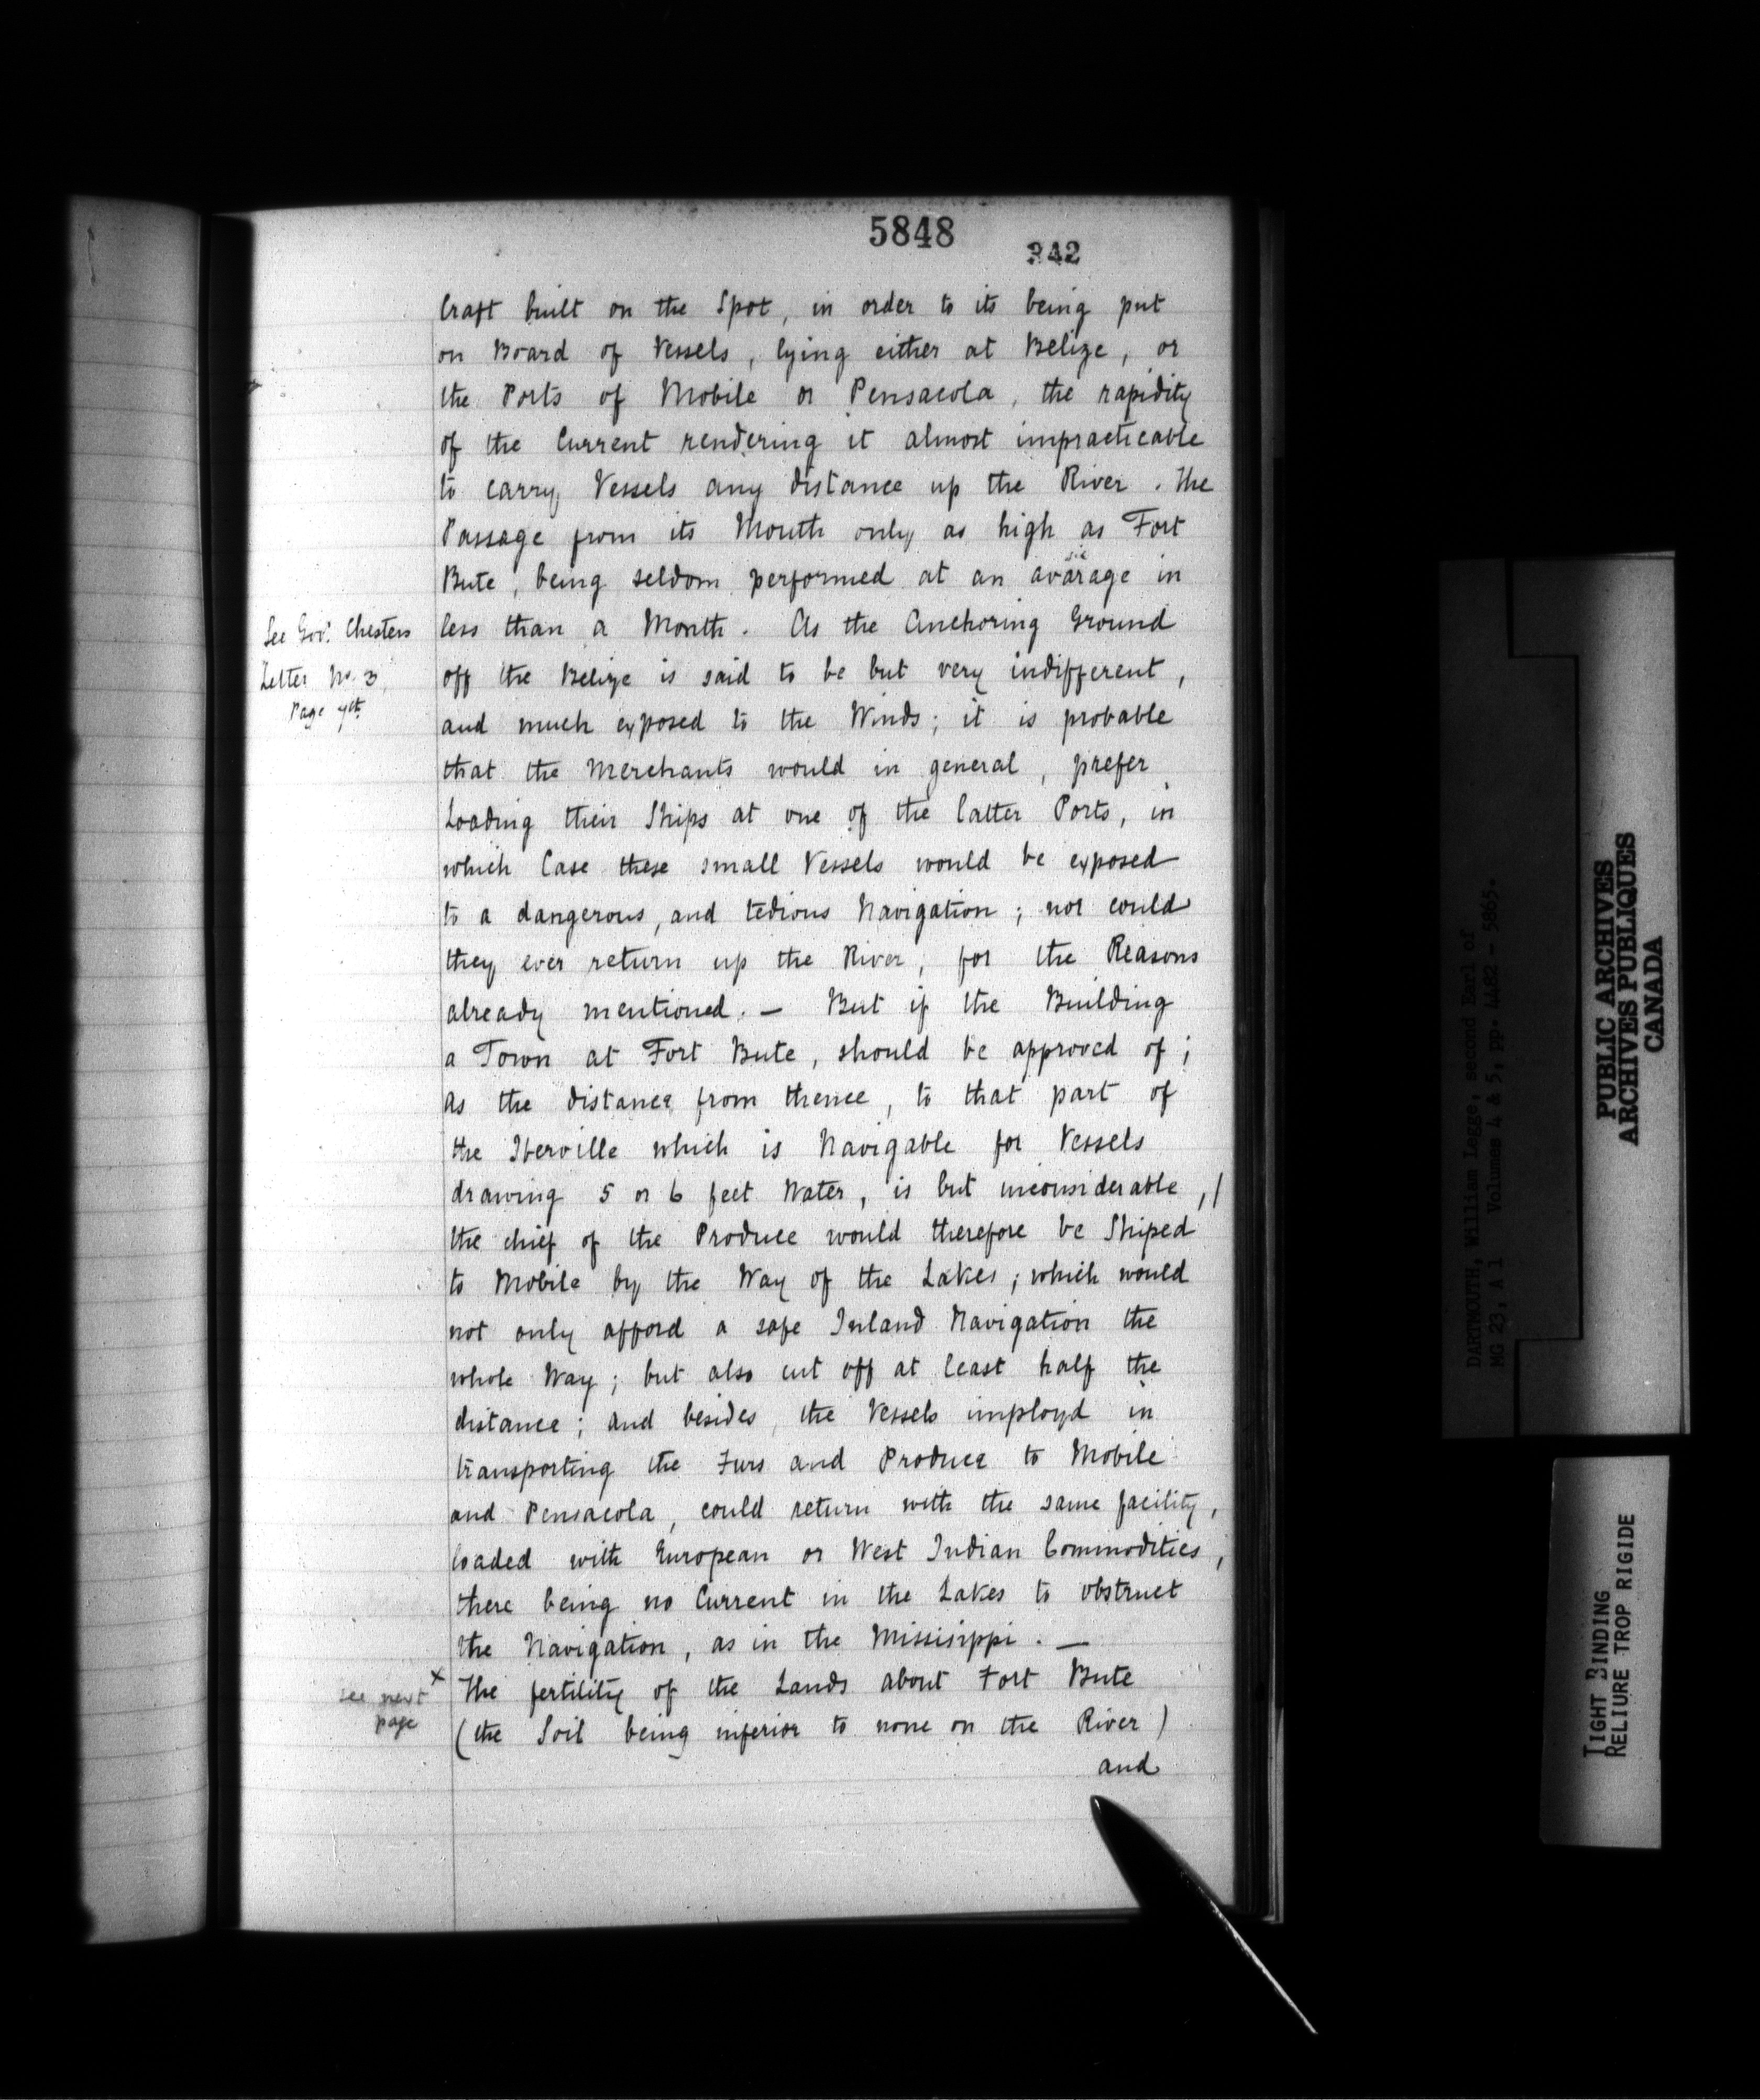 5848
342
Craft built on the Spot, in order to its being put
on Board of Vessels, lying either at Belize, or
the Ports of Mobile or Pensacola, the rapidity
of the Current rendering it almost impracticable
to carry Vessels any distance up the River. The
Passage from its Mouth only as high as Fort
sic
Bute, being seldom performed at an avarage in
less than a Month. As the Anchoring Ground
off the Belize is said to be but very indifferent,
and much exposed to the Winds; it is probable
that the Merchants would in general, prefer
Loading their Ships at one of the latter Ports, in
which Case these small Vessels would be exposed
to a dangerous, and tedious Navigation; nor could
they ever return up the River, for the Reasons
already mentioned. — But if the Building
a Town at Fort Bute, should be approved of;
as the distance from thence, to that part of
the Iberville which is Navigable for Vessels
drawing 5 or 6 feet Water, is but inconsiderable,/
the chief of the Produce would therefore be Shiped
to Mobile by the Way of the Lakes; which would
not only afford a safe Inland Navigation the
whole Way; but also cut off at least half the
distance; and besides, the Vessels imployd in
transporting the Furs and Produce to Mobile
and Pensacola, could return with the same facility,
loaded with European or West Indian Commodities,
there being no Current in the Lakes to obstruct
the Navigation, as in the Missisippi. —
x The fertility of the Lands about Fort Bute
(the Soil being inferior to none on the River)
and
See Govr. Chesters
Letter No. 3,
Page 7th
see next
page
DARTMOUTH, William Legge, second Earl of
MG 23, A 1 Volumes 4 & 5, pp. 4482 - 5865.
PUBLIC ARCHIVES
ARCHIVES PUBLIQUES
CANADA
TIGHT BINDING
RELIURE TROP RIGIDE